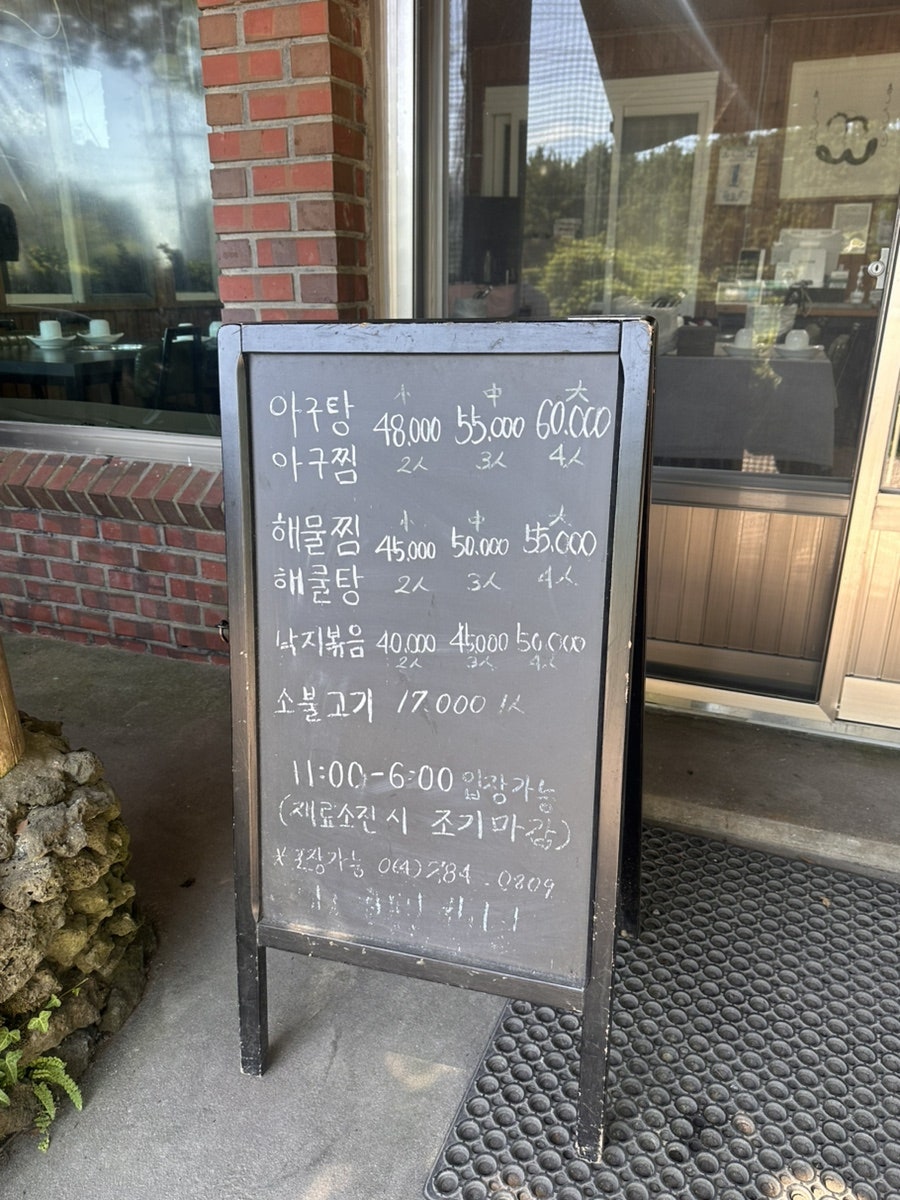 小 中 大
아구탕 48,000 55,000 60,000
아구찜 2人 3人 4人
小 中 大
해물찜 45,000 50,000 55,000
해물탕 2人 3人 4人
낙지볶음 40,000 45,000 50,000
2人 3人 4人
소불고기 17,000 1人
11:00-6:00 입장가능
(재료소진시 조기마감)
※포장가능 064)784-0809